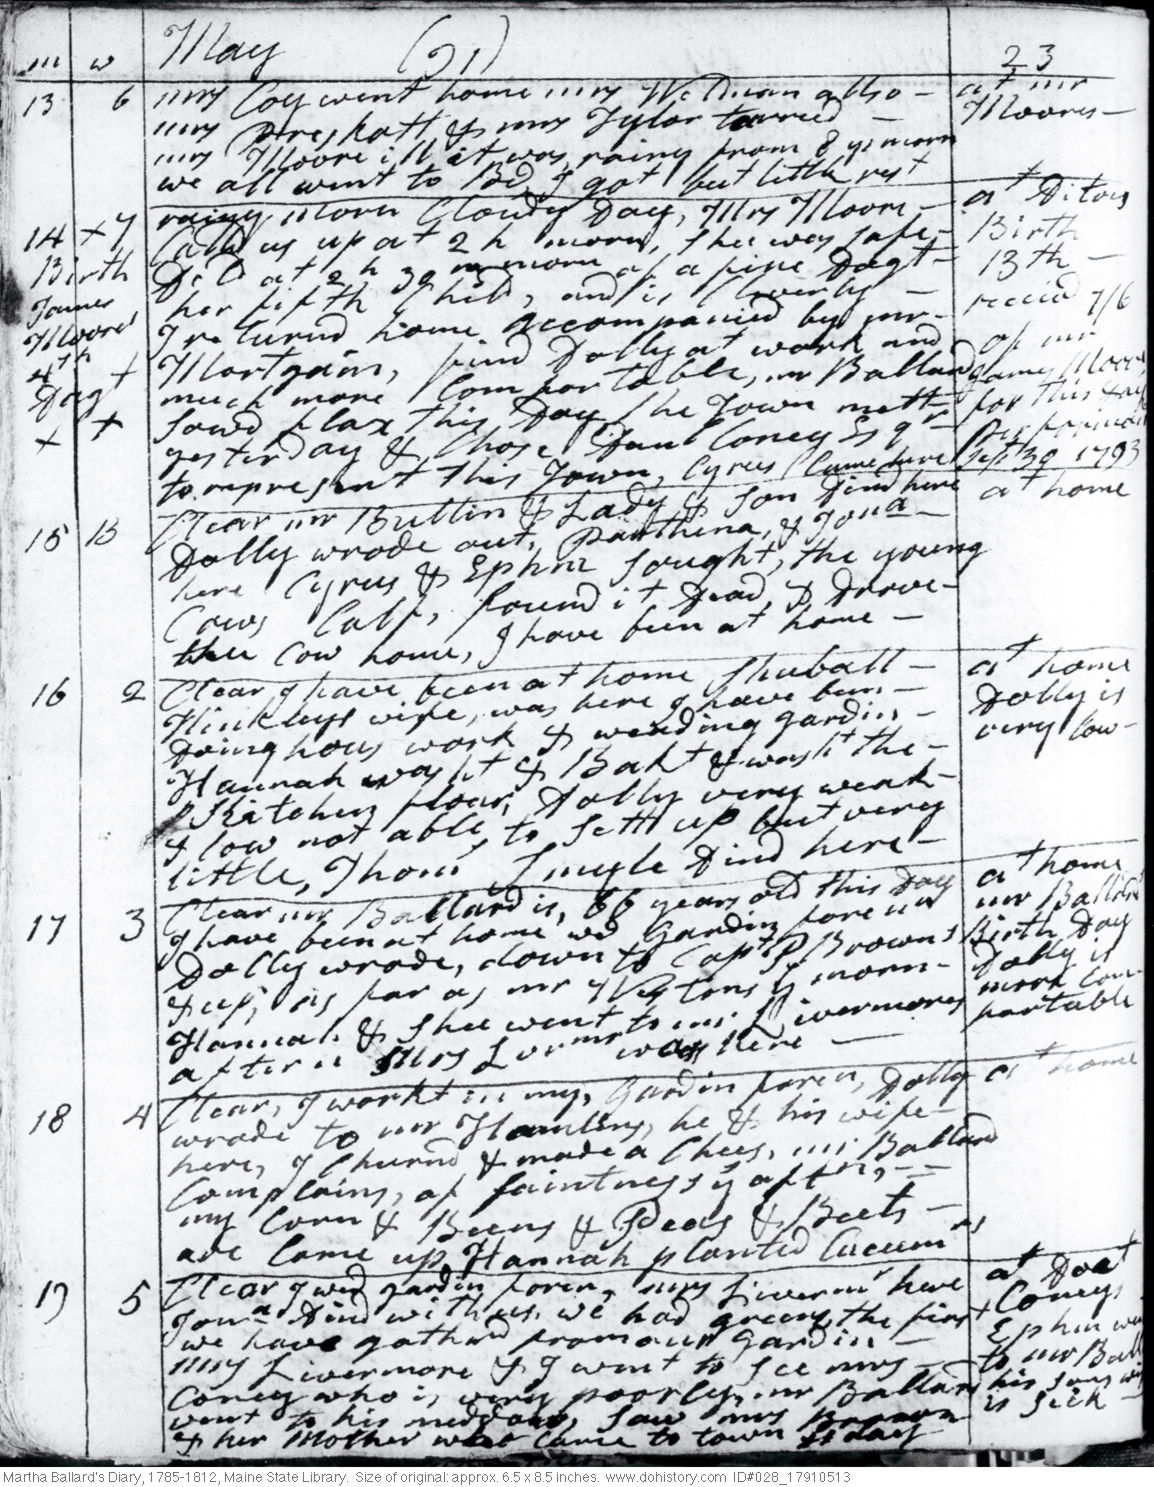 m w May (91) 23
13 6 mrs Coy went home mrs Wedman allso - at mr
mrs Preskatt & mrs Tylor tarried - Moores -
mrs Moore ill it was rainy from 8 ye morn
we all went to Bed, I got but little rest
rainy morn Cloudy Day, Mrs Moore - at Ditoes
14 x 7 Calld us up at 2 h morn, shee was safe - Birth
Birth Deld at 2 h 30 m morn of a fine Dagt - 13th -
James her fifth Child, and is Cleverly - receivd 7/6
Moores I returnd home accompanied by mr - of mr
4th + Mortgain, find Dolly at work and James Moore,
Dagt much more Comfortable, mr Ballard for this Day
x + sowd flax this Day the Town mett
yesterday & Chose Danl Coney Esqr
to represent this Town, Cyrus Came here Sept 30 1793
15 B Clear mr Bullin & Lady & son Dind here at home
Dolly wrode out, Parthena, & Jona -
here Cyrus & Ephm sought, the young
Cows Calf, found it Dead, & Drove -
thee Cow home, I have been at home -
16 2 Clear I have been at home Shuball - at home
Hinkleys wife, was here I have been - Dolly is
Doing hous work & weeding gardin - very low -
Hannah washt & Bakt & washt the -
Kitchen floar, Dolly very weak -
& low not able, to sett up but very
little, Thoms Lingle Dind here -
17 3 Clear mr Ballard is, 66 years old this Day at home
I have been at home wd Gardin forenn mr Ballards
Dolly wrode, down to Capt P Browns Birth Day
& up, as far as mr Westons ye morn - Dolly is
Hannah & Shee went to mr Livermores more Com-
aftern Mrs Livrmr was here - portable
18 4 Clear, I workt in my, Gardin foren, Dolly at home
wrode to mr Hamlins, he & his wife -
here, I Churnd & made a Chees, mr Ballard
Complains, of faintness ye aftn, -
my Corn & Beens & Peas & Beets -
are Come up, Hannah planted Cucumrs
19 5 Clear I wed gardin foren, mrs Livermr here at Doct
Jona Dind with us, we had greens the first Coneys
we have gatherd from our Gardin - Ephm went
mrs Livermore & I went to see mrs - to mr Ball
Coney who is very poorly, mr Ballard his sons wife
went to his meddow, saw mrs Brown is Sick -
& her Mother who came to town ys day
Martha Ballard's Diary, 1785-1812, Maine State Library. Size of original: approx. 6.5 x 8.5 inches. www.dohistory.com ID#028_17910513